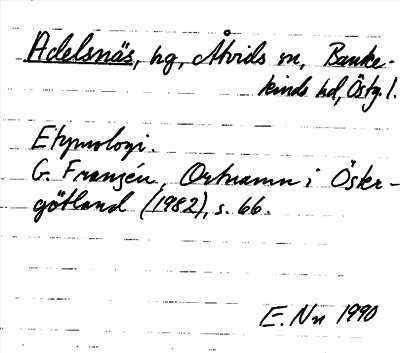 Adelsnäs, hg, Åtvids sn, Banke-
kinds hd, Östg. l.
Etymologi.
G. Franzén, Ortnamn i Öster-
götland (1982), s. 66.
E. Nn 1990